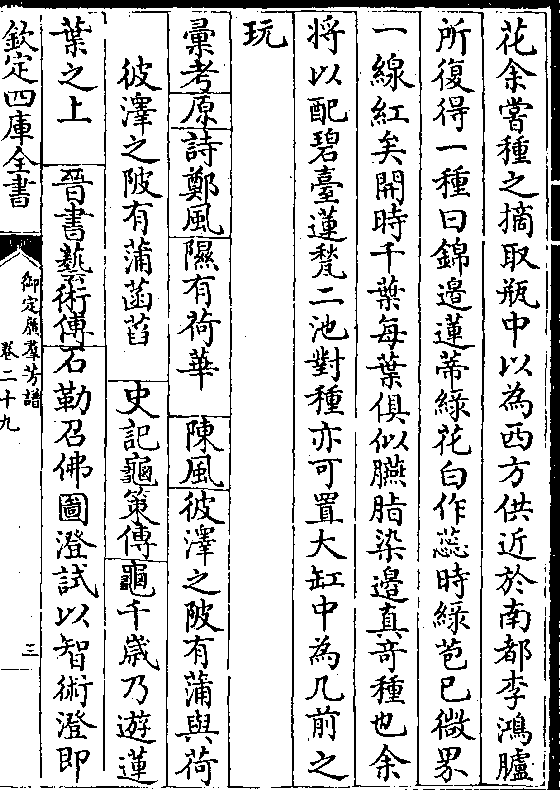 花余嘗種之摘取瓶中以為西方供近於南都李鴻臚
所復得一種曰錦邉蓮蒂緑花白作蕊時緑苞已微界
一線紅矣開時千葉每葉俱似臙脂染邉真竒種也余
将以配碧臺蓮甃二池對種亦可置大缸中為几前之
玩
彚考原詩鄭風隰有荷華　陳風彼澤之陂有蒲與荷
彼澤之陂有蒲菡萏　史記龜策傳龜千嵗乃遊蓮
葉之上　晉書藝術傳石勒召佛圖澄試以智術澄即
欽定四庫全書
御定廣羣芳譜
卷二十九
三